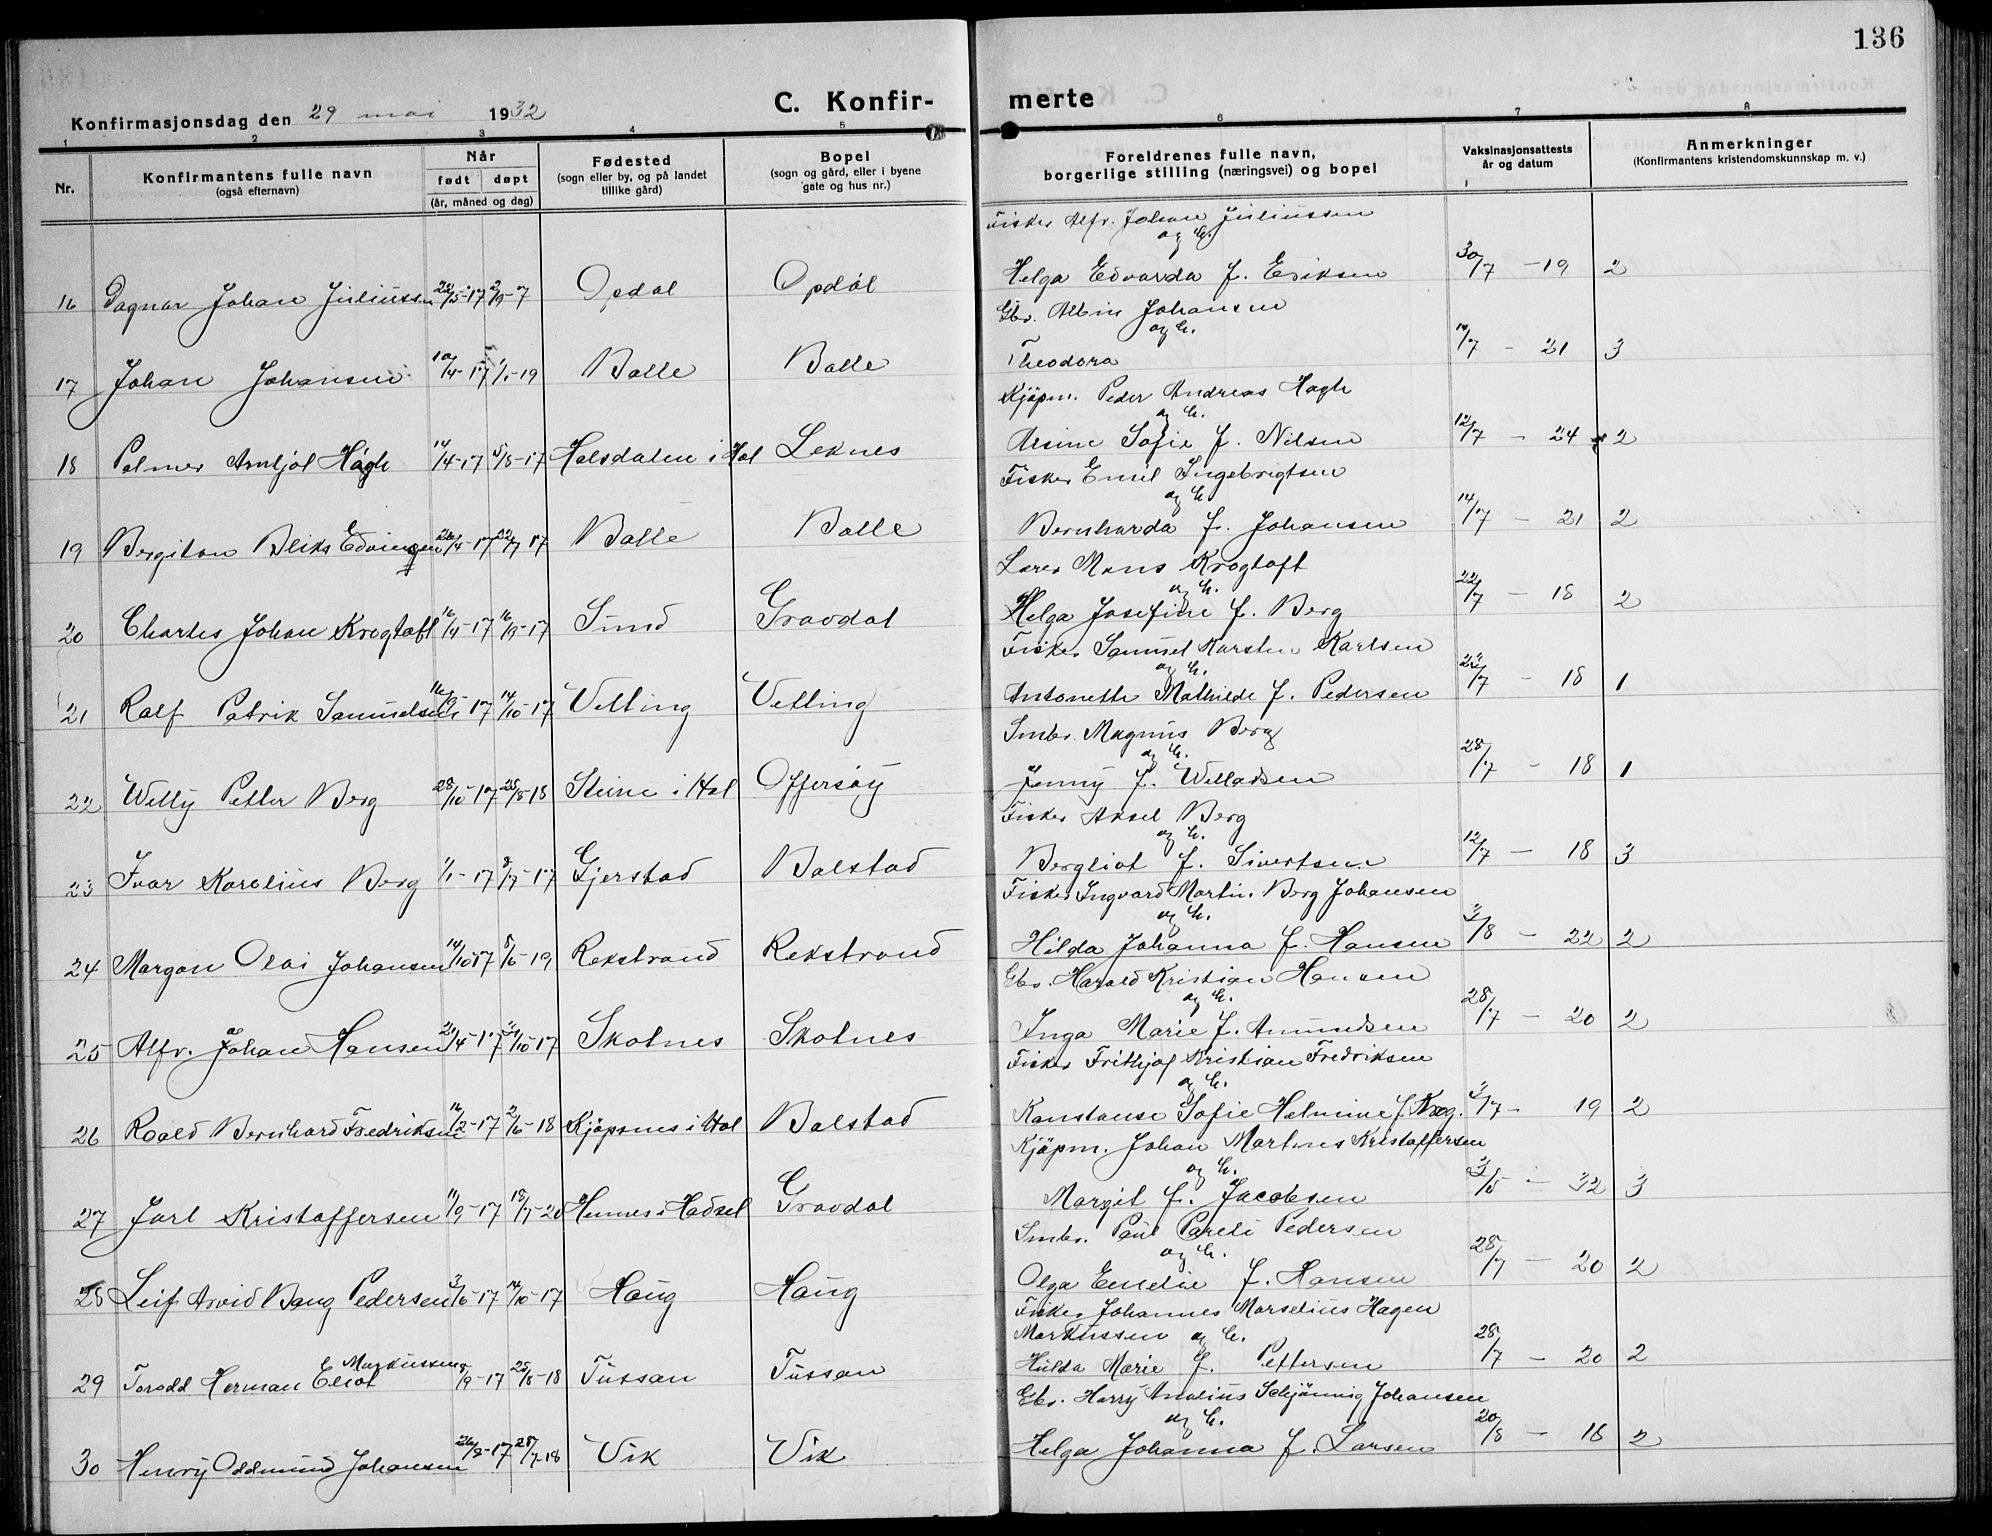 136
Konfirmasjonsdag den 29 mai 1932
C. Konfir-
merte
1 2 3 4 5 6 7 8
Nr.
Konfirmantens fulle navn
(også efternavn)
Når
født døpt
(år, måned og dag)
Fødested
(sogn eller by, og på landet
tillike gård)
Bopel
(sogn og gård, eller i byene
gate og hus nr.)
Foreldrenes fulle navn,
borgerlige stilling (næringsvei) og bopel
Vaksinasjonsattests
år og datum
Anmerkninger
(Konfirmantens kristendomskunnskap m. v.)
Fisker Alfr. Johan Juliussen
og h.
16 Dagnar Johan Juliussen 22/5-17 2/9-17 Opdal Opdal Helga Edvarda f. Eriksen 30/7 -19 2
Gbr. Albin Johansen
og h.
17 Johan Johansen 10/4-17 1/1-19 Balle Balle Theodora 14/7 - 21 3
Kjøpm. Peder Andreas Høgh
og h.
18 Palmer Arnljot Høgh 14/4-17 5/8-17 Halsdalen i Hol Leknes Arsine Sofie f. Nilsen 12/7 - 24 2
Fisker Emil Ingebrigtsen
og h.
19 Bergiton Bliks Edvinsen 26/4-17 22/7-17 Balle Balle Bernharda f. Johansen 14/7 - 21 2
Lærer Mons Krogtoft
og h.
20 Charles Johan Krogtoft 16/4-17 16/9-17 Sund Gravdal Helga Josefine f. Berg 22/7 - 18 2
Fisker Samuel Karsten Karlsen
og h.
21 Ralf Patrik Samuelsen 16/9-17 14/10-17 Vetting Vetting Antonette Mathilde f. Pedersen 22/7 - 18 1
Smbr. Magnus Berg
og h.
22 Willy Petter Berg 28/10-17 25/8-18 Steine i Hol Offersøy Jenny f. Willadsen 28/7 - 18 1
Fisker Aksel Berg
og h.
23 Ivar Karelius Berg 1/1-17 8/7-17 Gjerstad Balstad Bergliot f. Sivertsen 12/7 - 18 3
Fisker Ingvard Martin Berg Johansen
og h.
24 Margan Olai Johansen 14/10-17 8/6-19 Rekstrand Rekstrand Hilda Johanna f. Hansen 3/8 - 22 2
Gbr. Harald Kristian Hansen
og h.
25 Alfr. Johan Hansen 21/4-17 21/10-17 Skotnes Skotnes Inga Marie f. Amundsen 28/7 - 20 2
Fisker Frithjof Kristian Fredriksen
og h.
26 Roald Bernhard Fredriksen 16/12-17 2/6-18 Kjøpsnes i Hol Balstad Konstanse Sofie Helmine f. Krog. 3/7 - 19 2
Kjøpm. Johan Martnes Kristoffersen
og h.
27 Jarl Kristoffersen 11/9-17 18/7-20 Hennes i Hadsel Gravdal Margit f. Jacobsen 3/5 - 32 3
Smbr. Paul Pareli Pedersen
og h.
28 Leif Arvid Bang Pedersen 3/6-17 14/10-17 Haug Haug Olga Emelie f. Hansen 28/7 - 20 2
Fisker Johannes Marselius Hagen
Markussen og h.
29 Torodd Herman Eliot Markussen 8/9-17 25/8-18 Tussan Tussan Hulda Marie f. Pettersen 28/7 - 20 2
Gbr. Harry Analius Schjønnig Johansen
og h.
30 Henry Oddmund Johansen 26/8-17 28/7-18 Vik Vik Helga Johanna f. Larsen 20/8 - 18 2